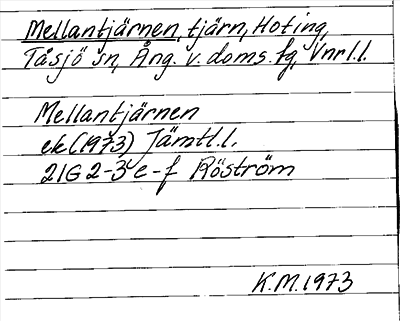 Mellantjärnen, tjärn, Hoting,
Tåsjö sn, Ång. v. doms. tg, Vnrl.l.
Mellantjärnen
ek (1973) Jämtl.l.
21G 2-3 e-f Röström
K.M. 1973